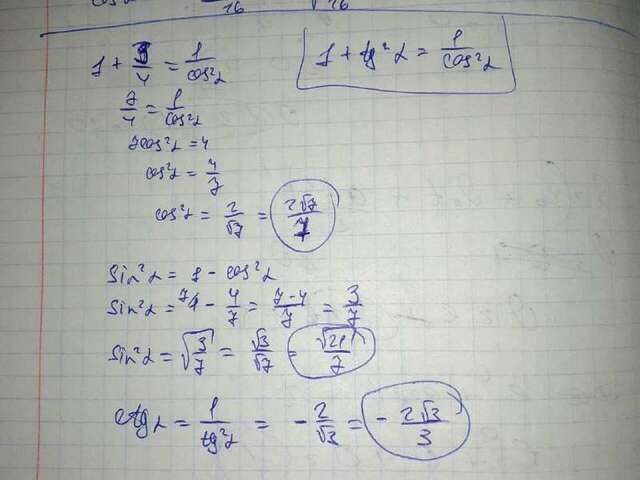 16 √26
1 + 3/4 = 1/cos²α
1 + tg²α = 1/cos²α
7/4 = 1/cos²α
7cos²α = 4
cos²α = 4/7
cos²α = 2/√7 = 2√7/7
Sin²α = 1 - cos²α
Sin²α = ⁷1 - 4/7 = 7-4/7 = 3/7
Sin²α = √3/7 = √3/√7 = √21/7
ctgα = 1/tg²α = -2/√3 = -2√3/3